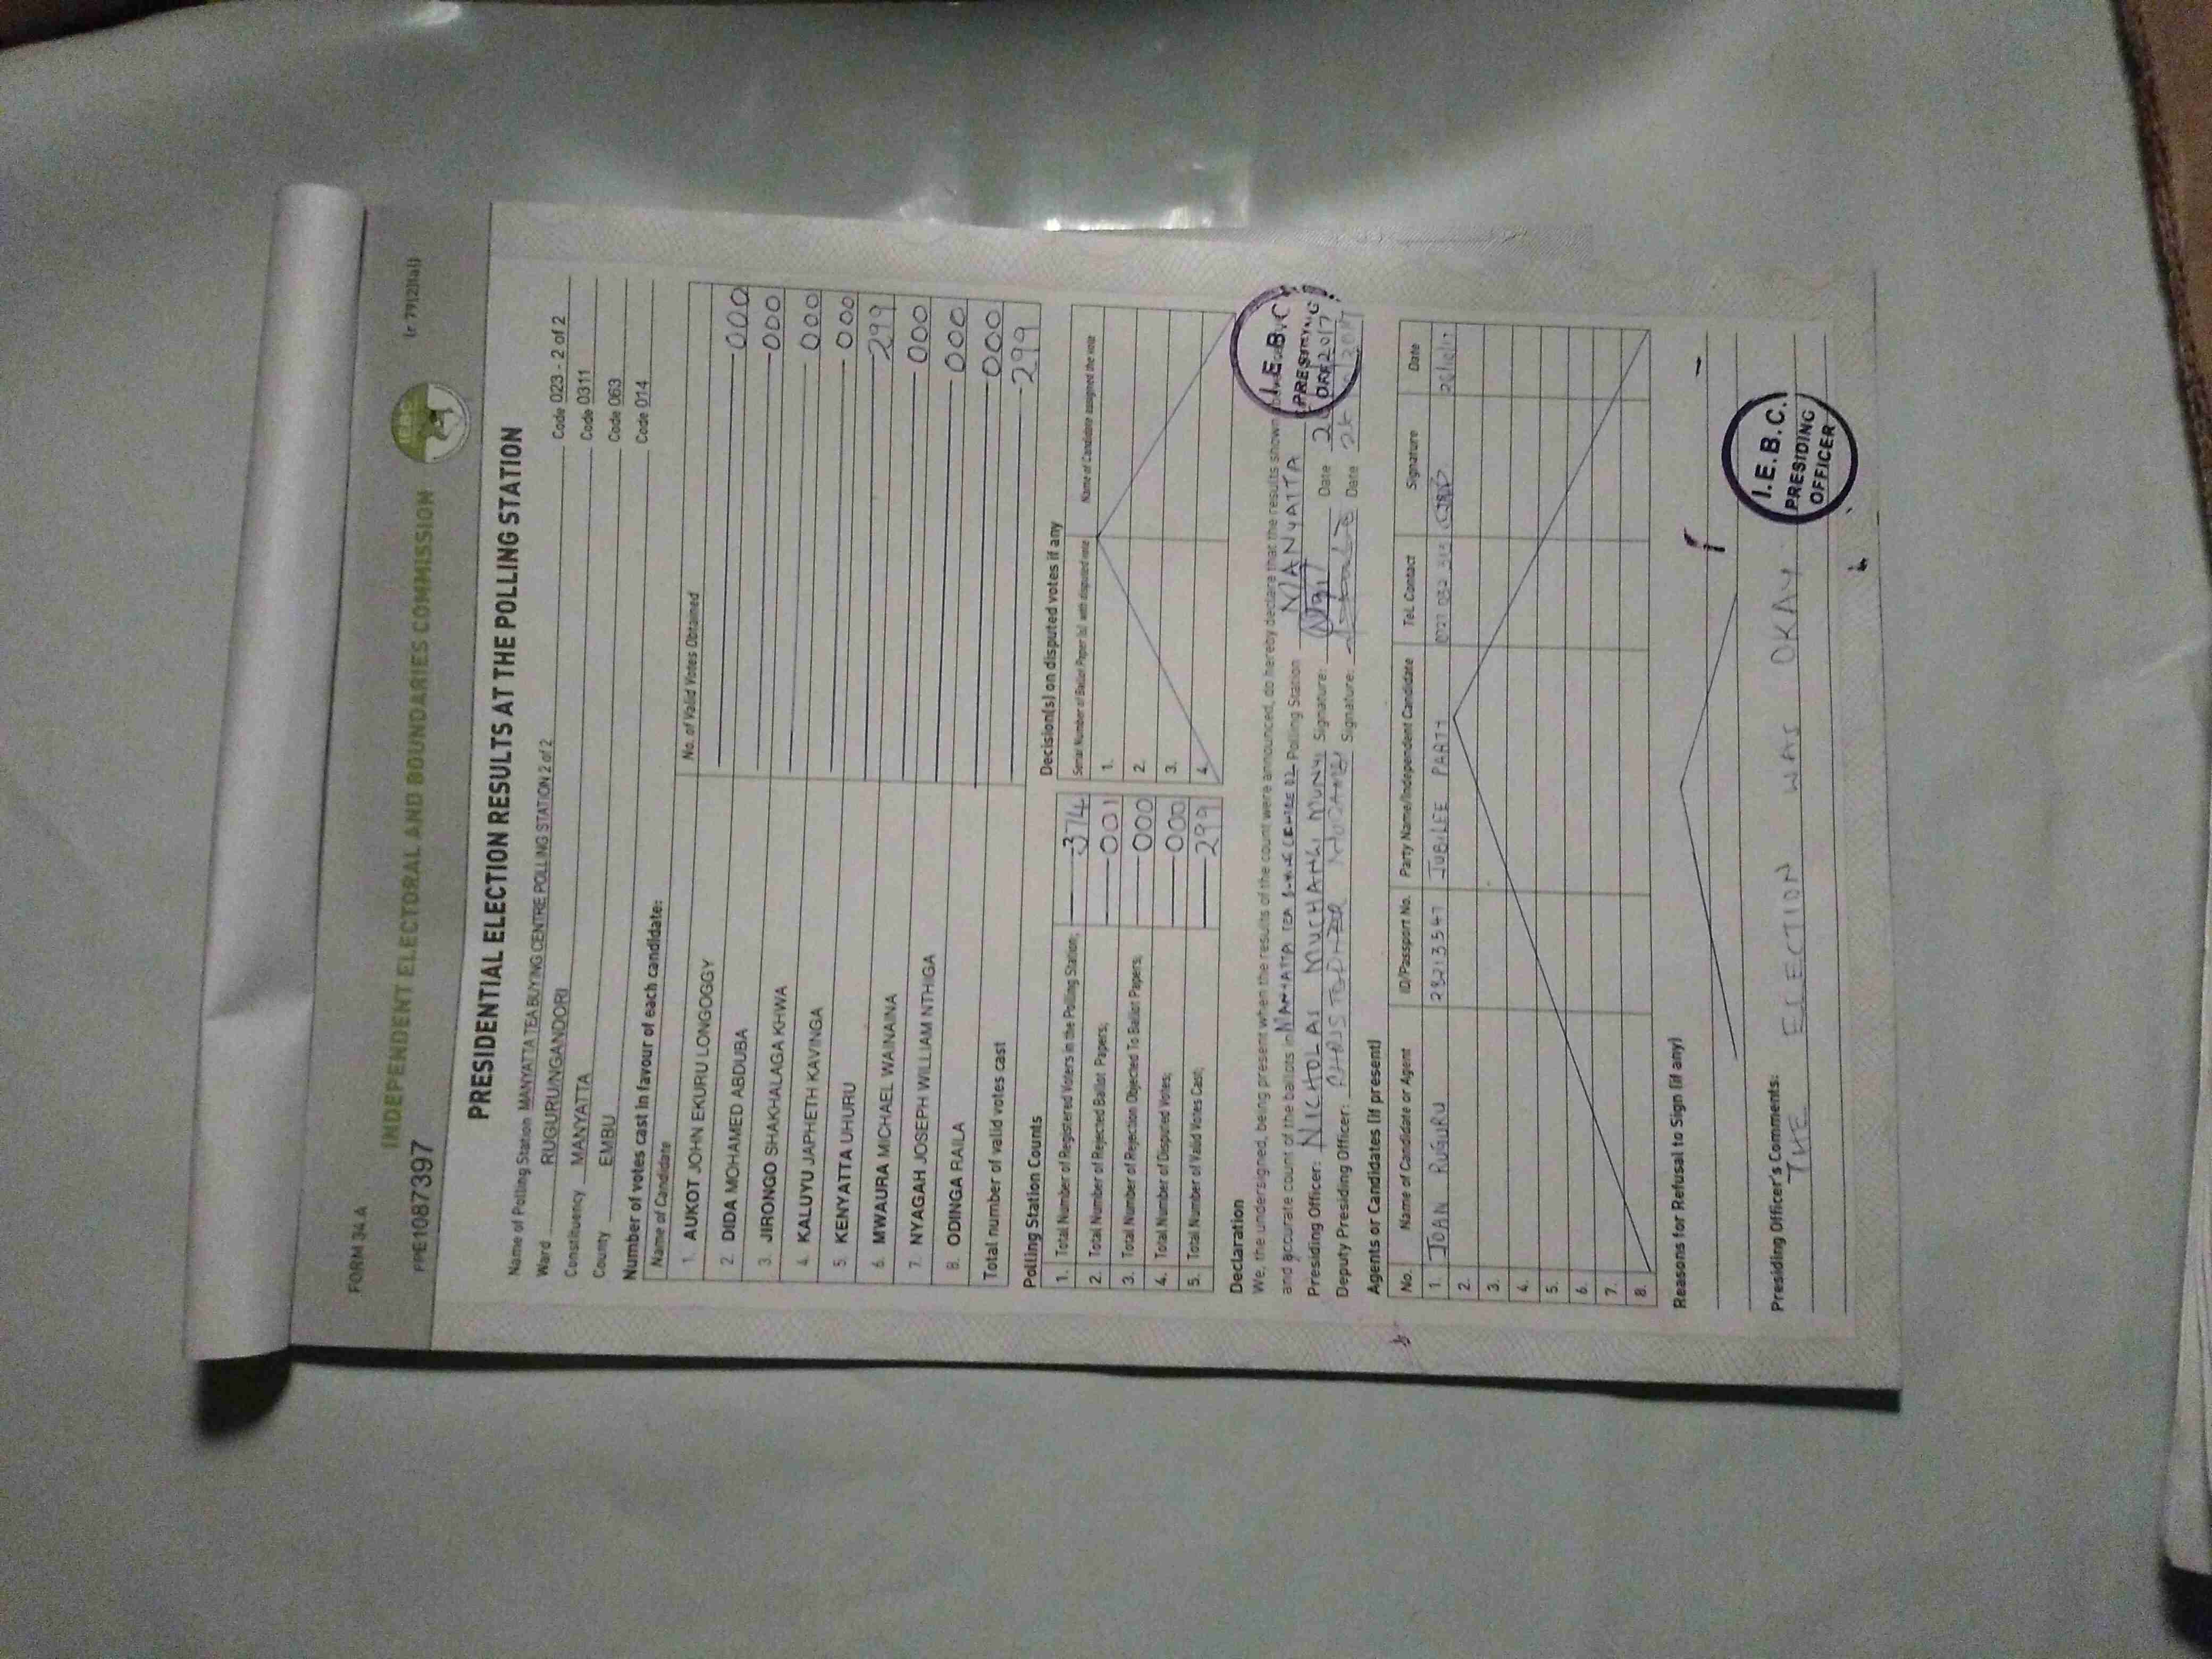 FORM 34 A
(r 79(2)(a))
INDEPENDENT ELECTORAL AND BOUNDARIES COMMISSION
PPE1087397
PRESIDENTIAL ELECTION RESULTS AT THE POLLING STATION
Name of Polling Station MANYATTA TEA BUYING CENTRE POLLING STATION 2 of 2 Code 023 - 2 of 2
Ward RUGURU/NGANDORI Code 0311
Constituency MANYATTA Code 063
County EMBU Code 014
Number of votes cast in favour of each candidate:
Name of Candidate No. of Valid Votes Obtained
1. AUKOT JOHN EKURU LONGOGGY 000
2. DIDA MOHAMED ABDUBA 000
3. JIRONGO SHAKHALAGA KHWA 000
4. KALUYU JAPHETH KAVINGA 000
5. KENYATTA UHURU 299
6. MWAURA MICHAEL WAINAINA 000
7. NYAGAH JOSEPH WILLIAM NTHIGA 000
8. ODINGA RAILA 000
Total number of valid votes cast 299
Polling Station Counts
1. Total Number of Registered Voters in the Polling Station; 374
2. Total Number of Rejected Ballot Papers; 001
3. Total Number of Rejection Objected To Ballot Papers; 000
4. Total Number of Disputed Votes; 000
5. Total Number of Valid Votes Cast; 299
Decision(s) on disputed votes if any
Serial Number of Ballot Paper (s) with disputed vote Name of Candidate assigned the vote
1.
2.
3.
4.
Declaration
We, the undersigned, being present when the results of the count were announced, do hereby declare that the results shown
and accurate count of the ballots in MANYATTA TEA CENTRE 02 Polling Station MANYATTA
Presiding Officer: NICHOLAS MUCHANGI MUNYI Signature: Date 2017
Deputy Presiding Officer: Signature: Date 2017
I.E.B.C
PRESIDING
OFF
Agents or Candidates (if present)
No. Name of Candidate or Agent ID/Passport No. Party Name/Independent Candidate Tel. Contact Signature Date
1. JOAN RUGURU 23213547 JUBILEE PARTY
2.
3.
4.
5.
6.
7.
8.
Reasons for Refusal to Sign (if any)
Presiding Officer's Comments:
THE ELECTION WAS OKAY
I.E.B.C.
PRESIDING
OFFICER